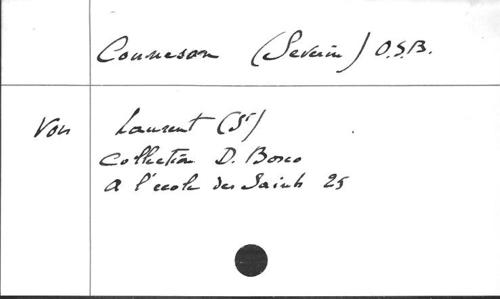 Connesson (Severin) O.S.B.
Voir Laurent (St)
Collection D. Bosco
A l'école des Saints 25